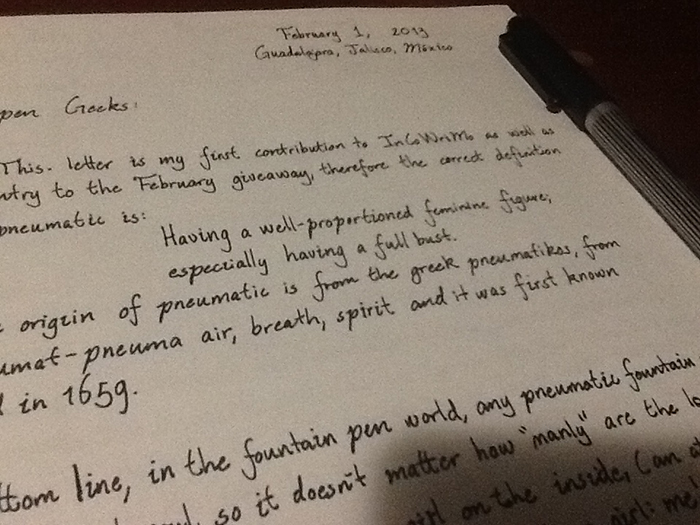 February 1, 2013
Guadalajara, Jalisco, México
pen Geeks:
This. letter is my first contribution to InCoWriMo as well as
ntry to the February giveaway, therefore the correct definition
pneumatic is:
Having a well-proportioned feminine figure;
especially having a full bust.
origin of pneumatic is from the greek pneumatikos, from
umat-pneuma air, breath, spirit and it was first known
in 1659.
ttom line, in the fountain pen world, any pneumatic fountain
so it doesn't matter how "manly" are the lo
girl on the inside, Can
girl: me